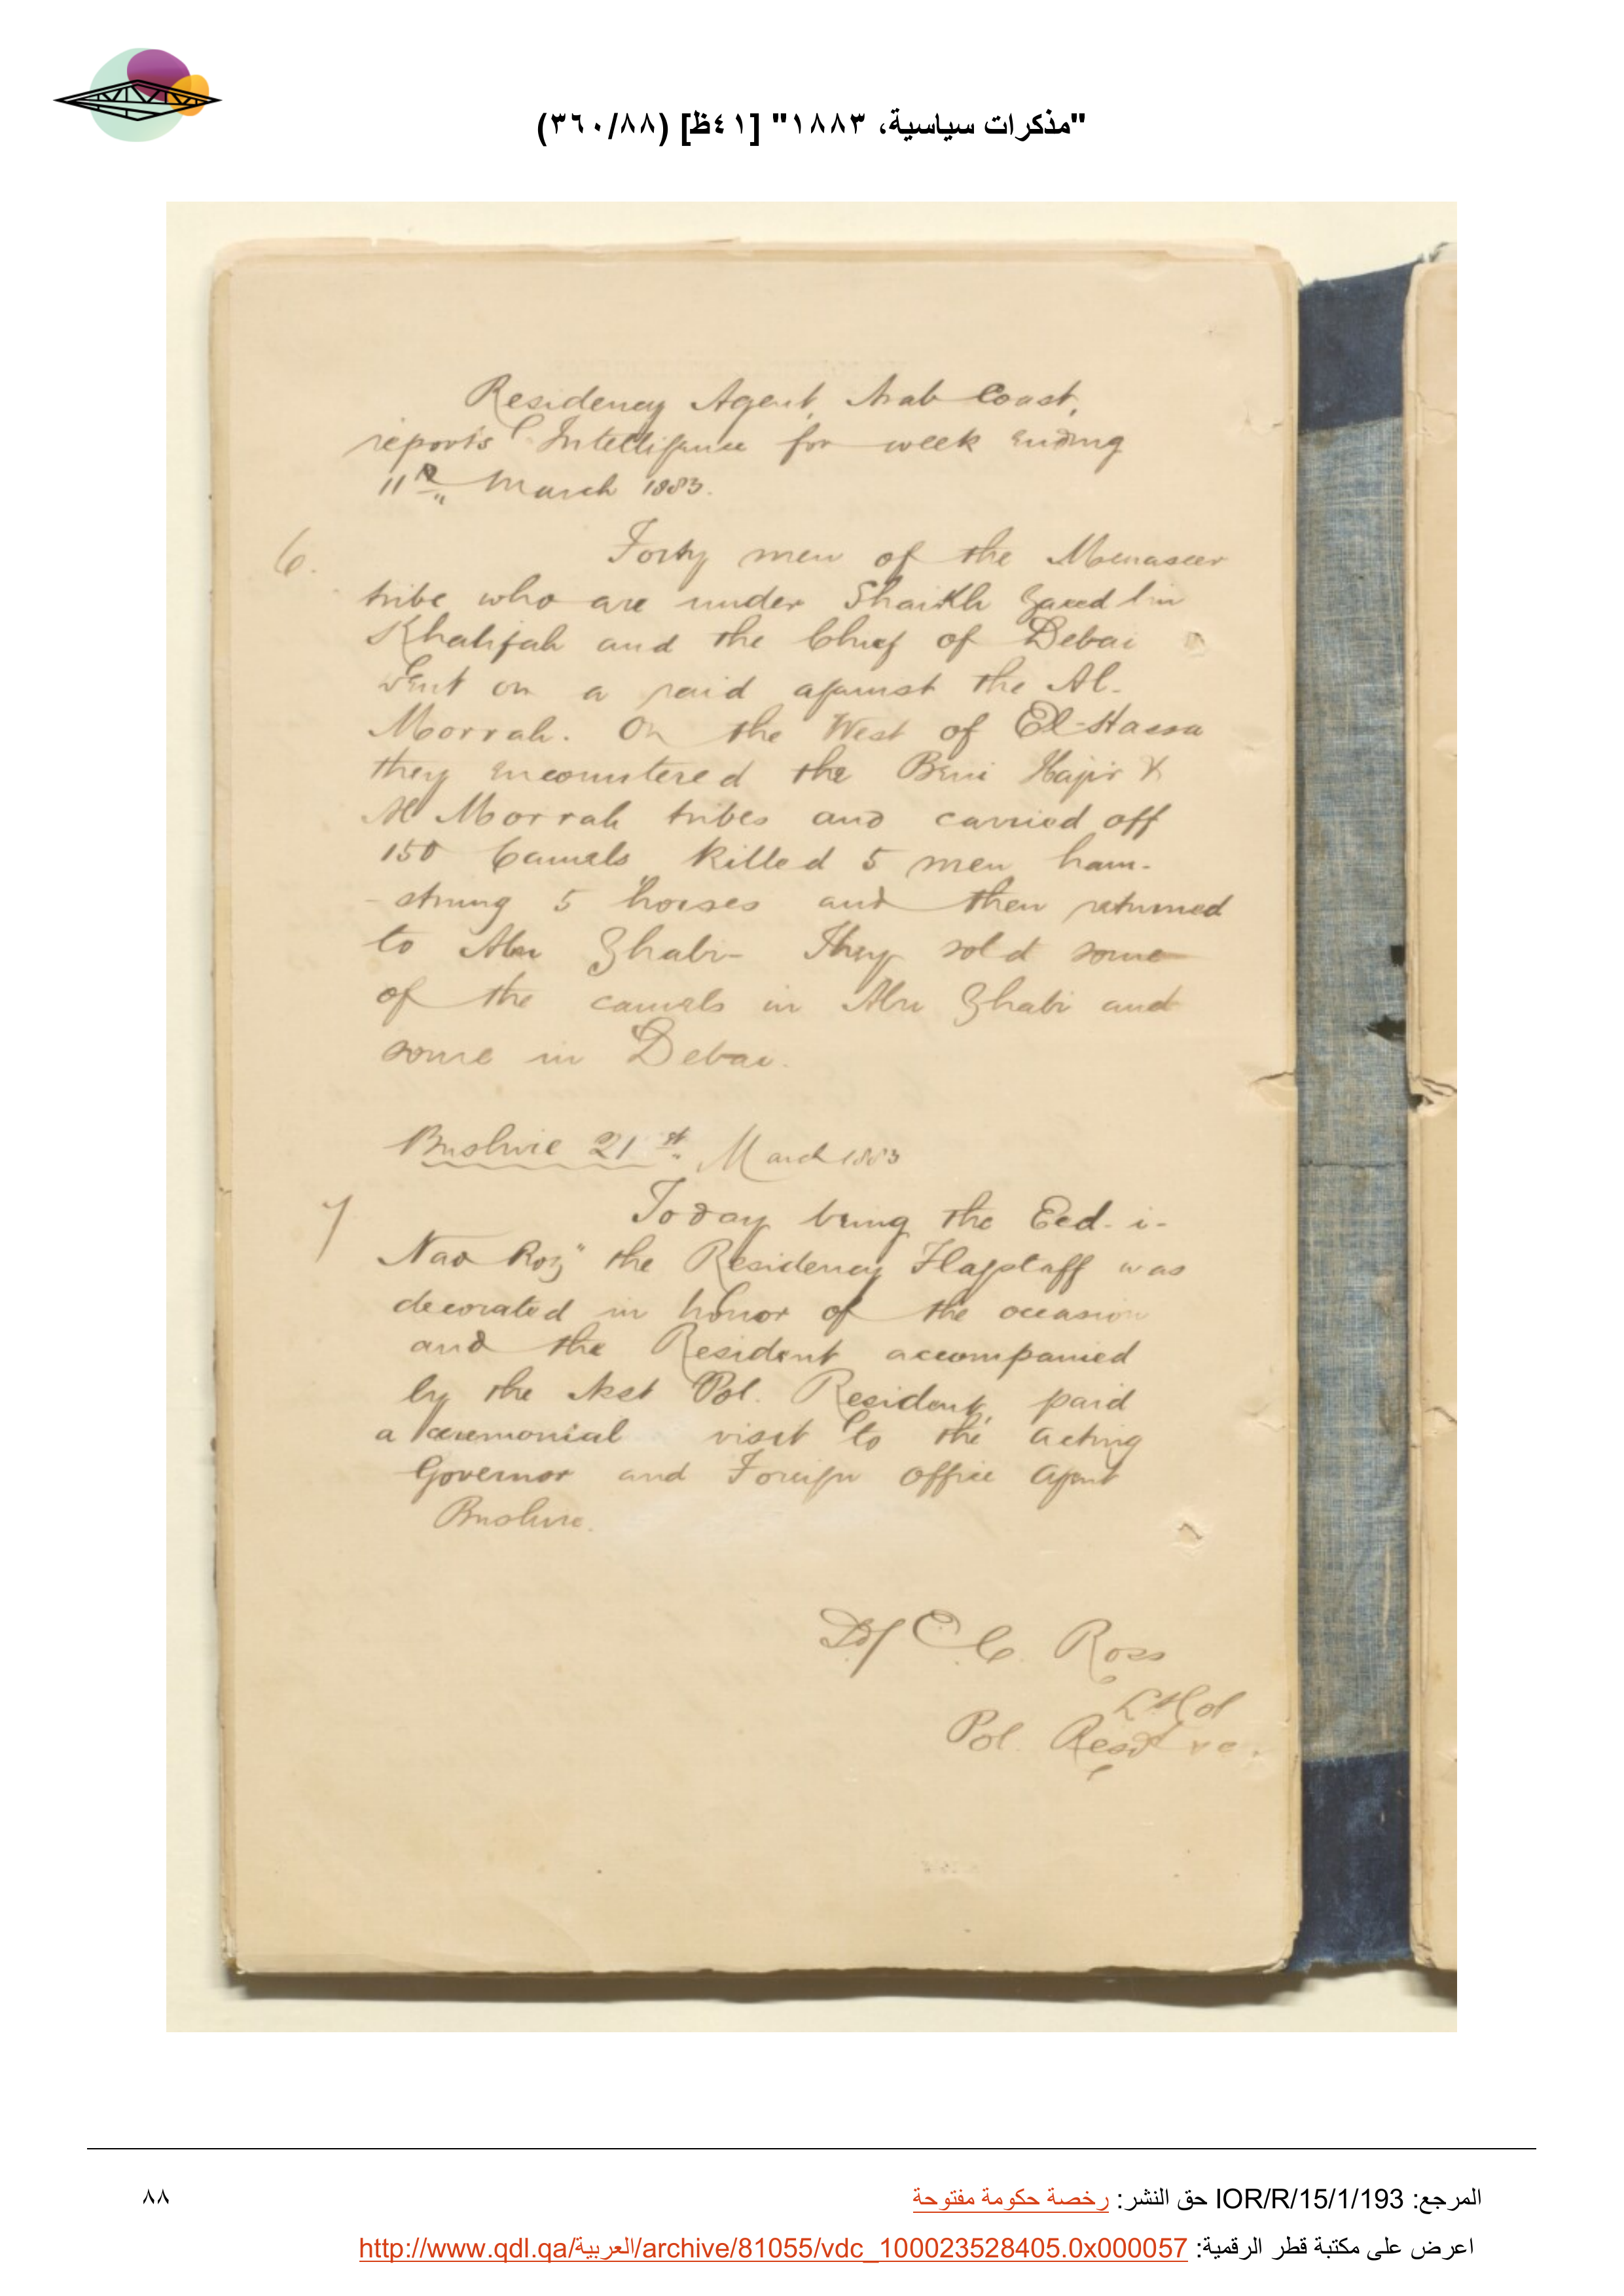 "مذكرات سياسية، ١٨٨٣" [٤١ظ] (٣٦٠/٨٨)
Residency Agent, Arab Coast,
reports Intelligence for week ending
11th March 1883.
6. Forty men of the Menaseer
tribe who are under Shaikh Zaeed bin
Khalifah and the Chief of Debai
went on a raid against the Al-
Morrah. On the West of El-Hassa
they encountered the Beni Hajir &
Al Morrah tribes and carried off
150 Camels, killed 5 men ham-
-strung 5 horses and then returned
to Abu Zhabi- They sold some
of the camels in Abu Zhabi and
some in Debai.
Bushire 21st March 1883
7 Today being the Eed-i-
Nao Roz" the Residency Flagstaff was
decorated in honor of the occasion
and the Resident accompanied
by the Asst Pol. Resident, paid
a ceremonial visit to the acting
Governor and Foreign Office Agent
Bushire.
Sd/ E. C. Ross
Lt Col
Pol. Resdt
المرجع: IOR/R/15/1/193 حق النشر: رخصة حكومة مفتوحة
٨٨
اعرض على مكتبة قطر الرقمية: http://www.qdl.qa/العربية/archive/81055/vdc_100023528405.0x000057